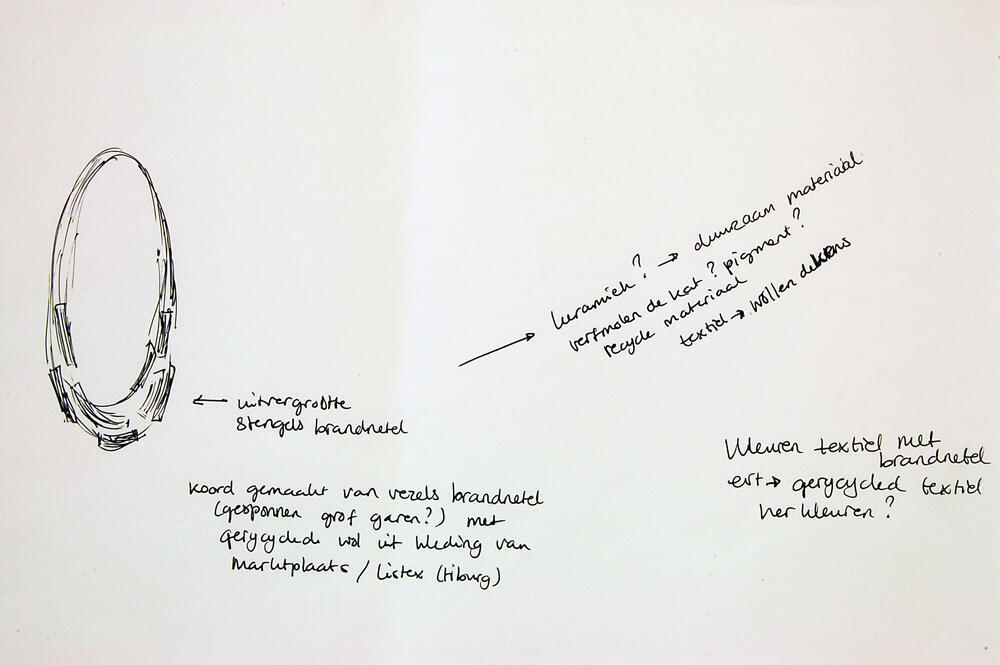 keramiek? → duurzaam materiaal
verfmolen de kat? pigment?
recycle materiaal
textiel → wollen dekens
← uitvergrootte
stengels brandnetel
koord gemaakt van vezels brandnetel
(gesponnen grof garen?) met
gerycyclede wol uit kleding van
marktplaats / listex (tilburg)
kleuren textiel met
brandnetel
→ gerycycled textiel
her kleuren?